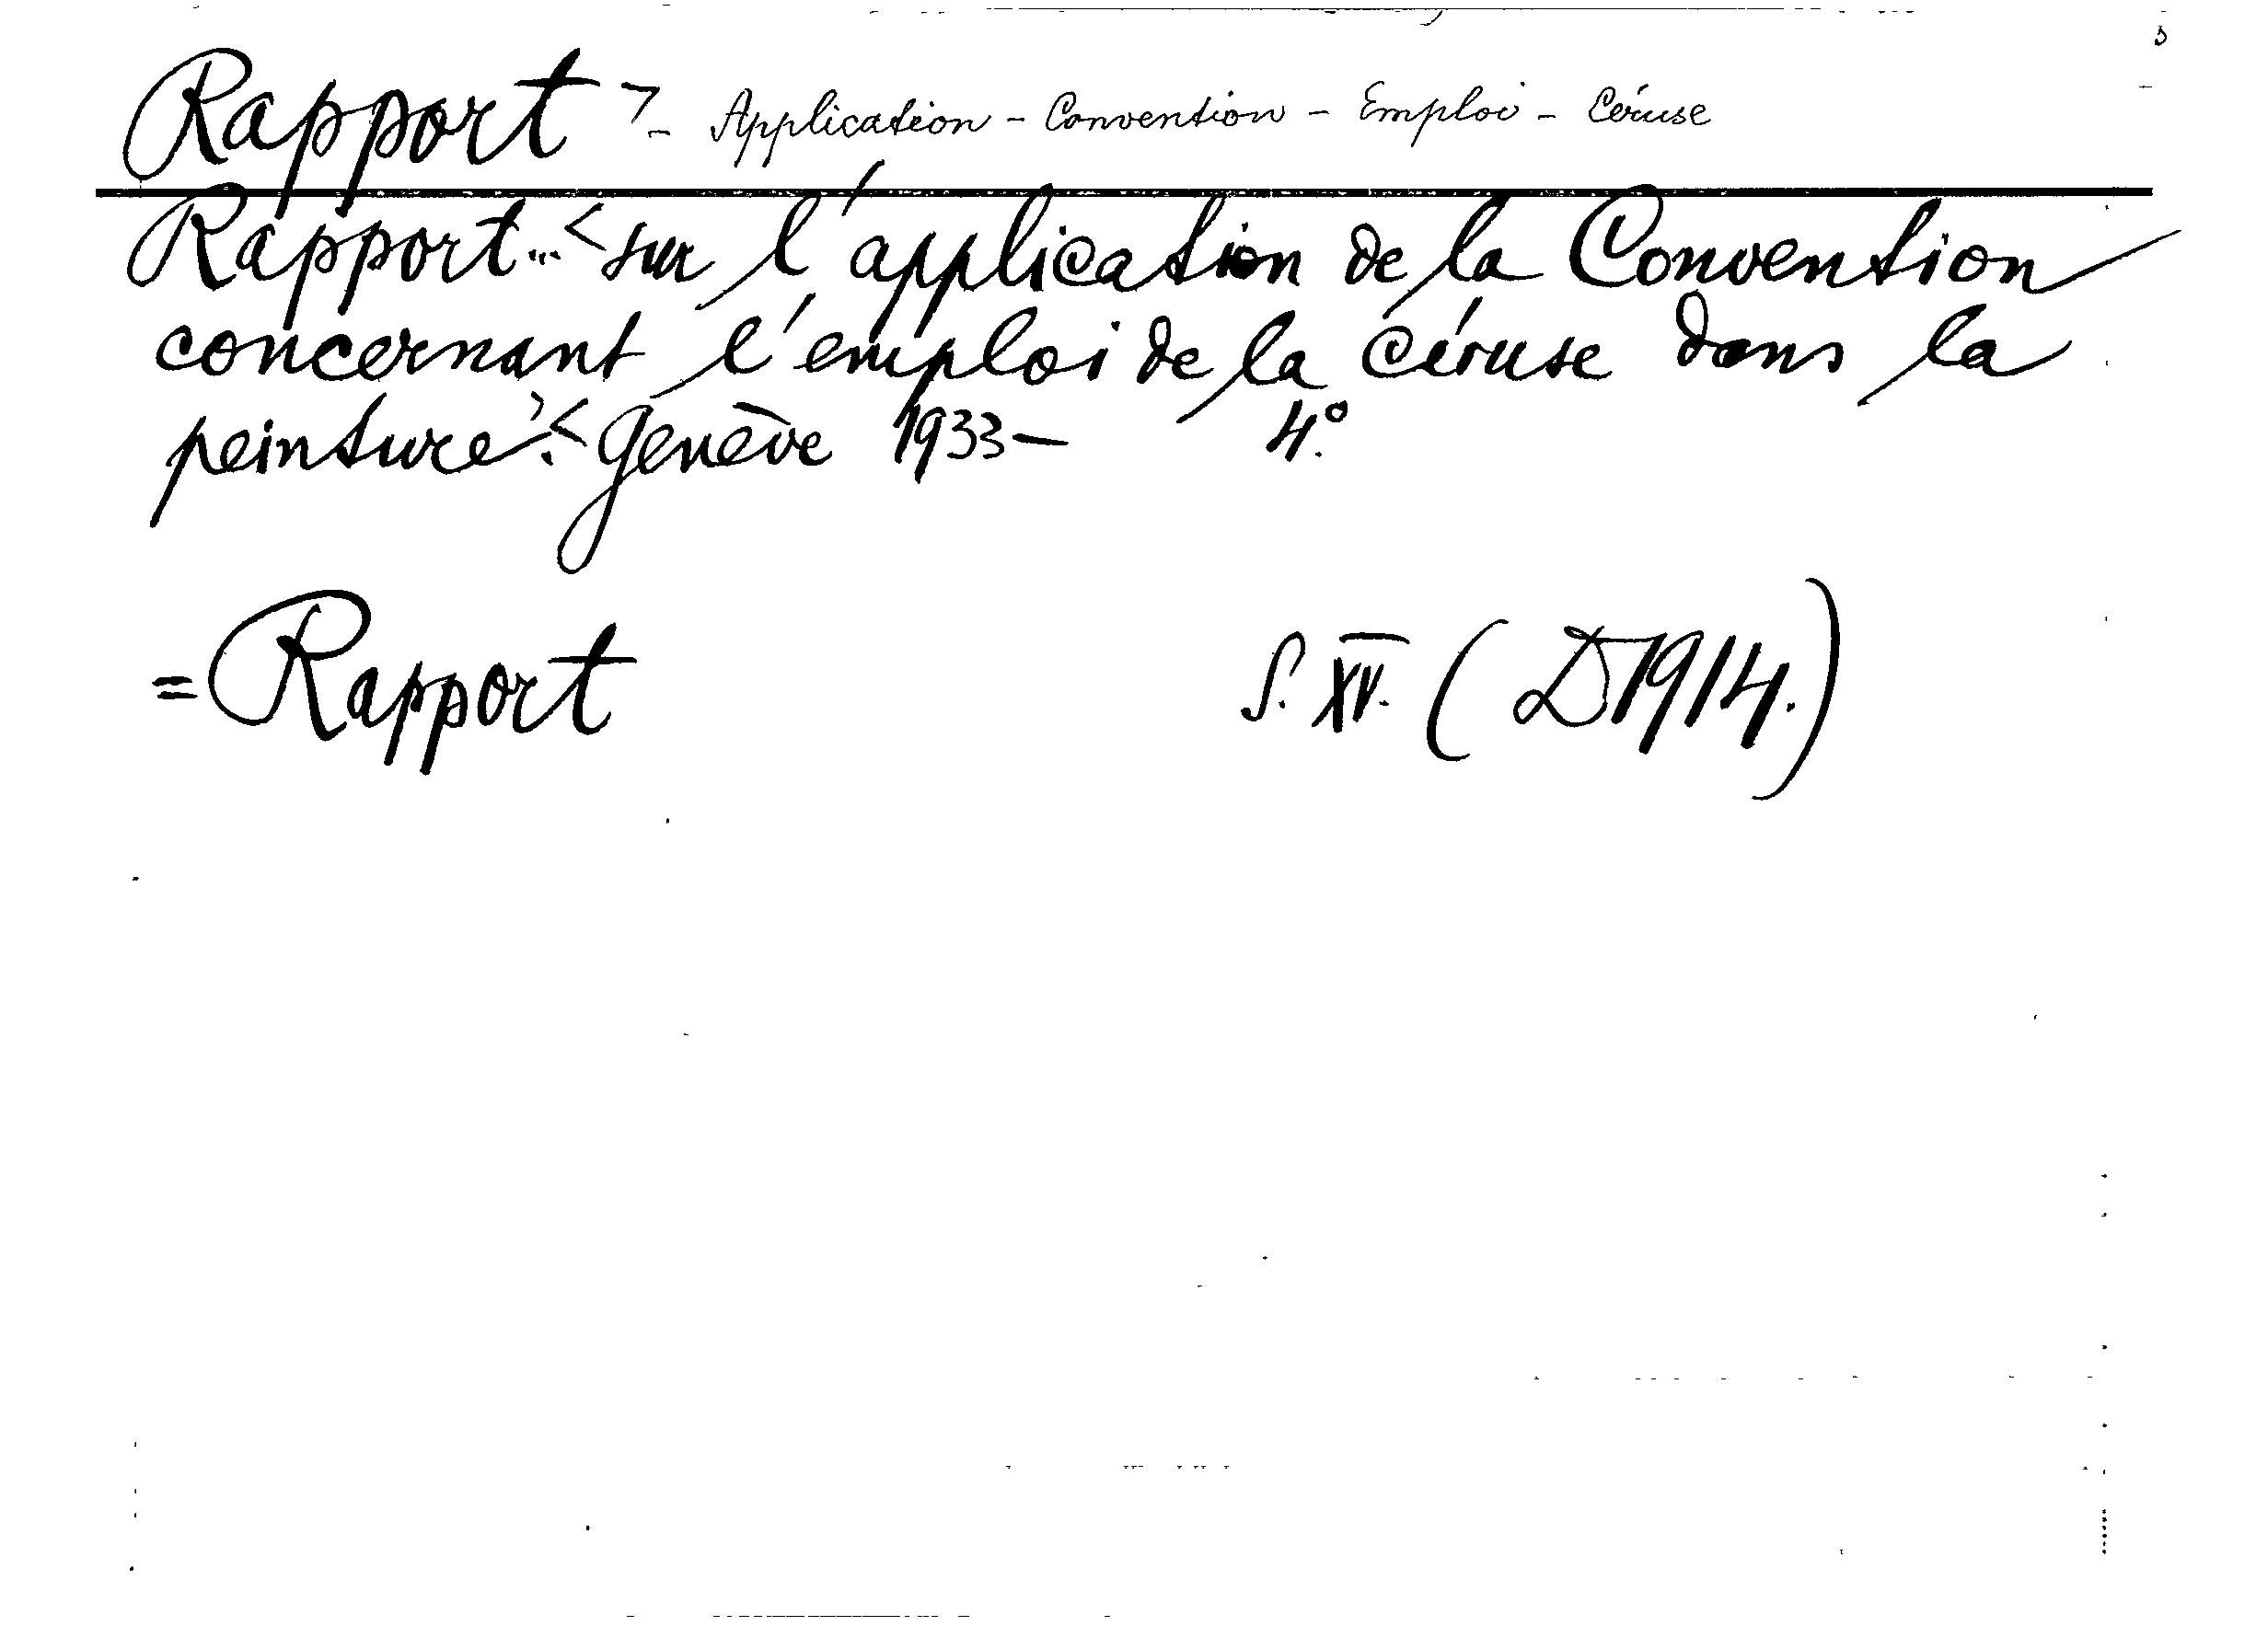 Rapport - Application - Convention - Emploi - Céruse
Rapport... sur l'application de la Convention
concernant l'emploi de la céruse dans la
peinture. Genève 1933 — 4.°
= Rapport S. XV. (D1914.)